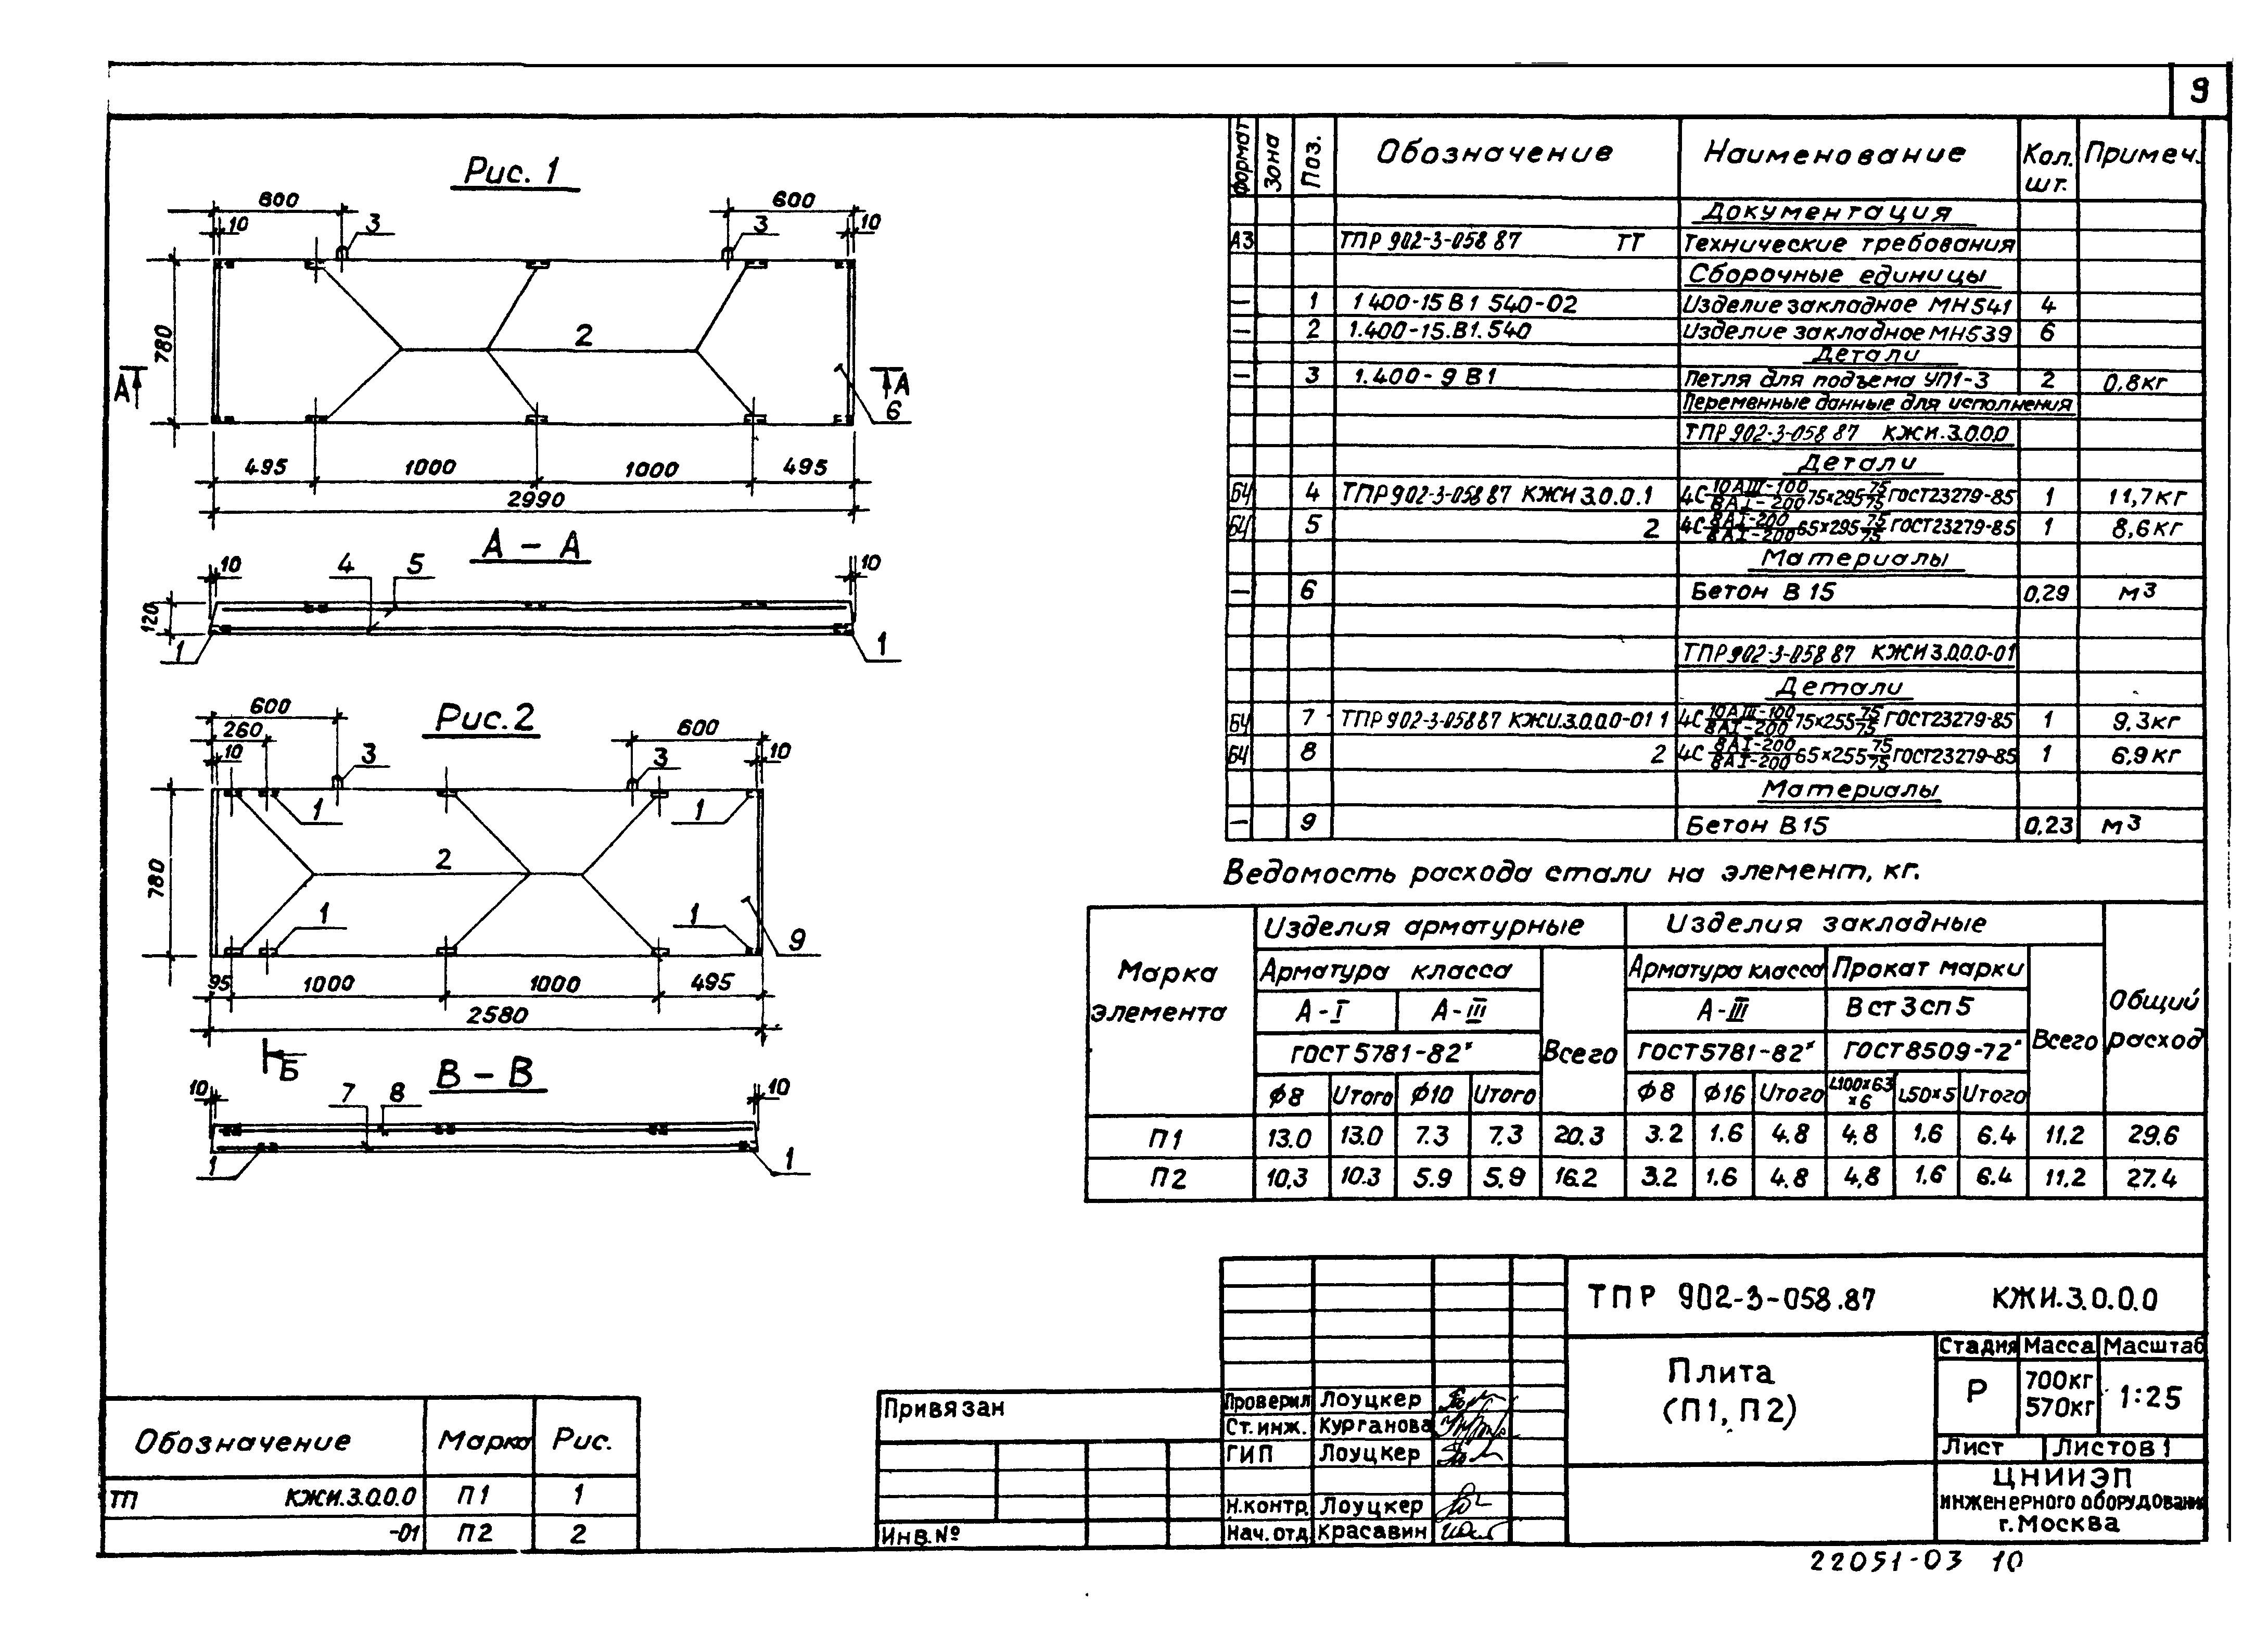 9
Рис. 1
600 600
10 3 3 10
780
2
А А
6
495 1000 1000 495
2990
А – А
10 4 5 10
120
1 1
600
260
Рис. 2
600
10 3 3 10
1 1
780
2
1 1
9
95 1000 1000 495
2580
Б
В – В
10 7 8 10
1 1
Формат Зона Поз. Обозначение Наименование Кол. шт. Примеч.
Документация
А3 ТПР 902-3-058 87 ТТ Технические требования
Сборочные единицы
– 1 1 400-15 В 1 540-02 Изделие закладное МН541 4
– 2 1.400-15.В1.540 Изделие закладное МН539 6
Детали
– 3 1.400-9 В1 Петля для подъема УП1-3 2 0,8кг
Переменные данные для исполнения
ТПР 902-3-058 87 КЖИ.3.0.0.0
Детали
БЧ 4 ТПР 902-3-058 87 КЖИ 3.0.0.1 4С 10АIII-100/8АI-200 75×295 75/75 ГОСТ23279-85 1 11,7кг
БЧ 5 2 4С 8АI-200/8АI-200 65×295 75/75 ГОСТ23279-85 1 8,6кг
Материалы
– 6 Бетон В 15 0,29 м3
ТПР 902-3-058 87 КЖИ 3.0.0.0-01
Детали
БЧ 7 ТПР 902-3-058 87 КЖИ.3.0.0.0-01 1 4С 10АIII-100/8АI-200 75×255 75/75 ГОСТ23279-85 1 9,3кг
БЧ 8 2 4С 8АI-200/8АI-200 65×255 75/75 ГОСТ23279-85 1 6,9кг
Материалы
– 9 Бетон В15 0,23 м3
Ведомость расхода стали на элемент, кг.
Марка элемента Изделия арматурные Изделия закладные Общий расход
Арматура класса Всего Арматура класса Прокат марки Всего
А-I А-III А-III В ст 3 сп 5
ГОСТ 5781-82* ГОСТ5781-82* ГОСТ8509-72*
ϕ8 Итого ϕ10 Итого ϕ8 ϕ16 Итого L100×63×6 L50×5 Итого
П1 13.0 13.0 7.3 7.3 20.3 3.2 1.6 4.8 4,8 1.6 6.4 11,2 29.6
П2 10,3 10.3 5.9 5.9 16.2 3.2 1.6 4.8 4,8 1.6 6.4 11.2 27.4
ТПР 902-3-058.87 КЖИ.3.0.0.0
Плита
(П1, П2)
Стадия Масса Масштаб
Р 700кг 570кг 1:25
Лист Листов 1
ЦНИИЭП
инженерного оборудования
г.Москва
Проверил Лоуцкер
Ст.инж. Курганова
ГИП Лоуцкер
Н.контр. Лоуцкер
Нач.отд. Красавин
Привязан
Инв.№
Обозначение Марка Рис.
ТП КЖИ.3.0.0.0 П1 1
-01 П2 2
22051-03 10